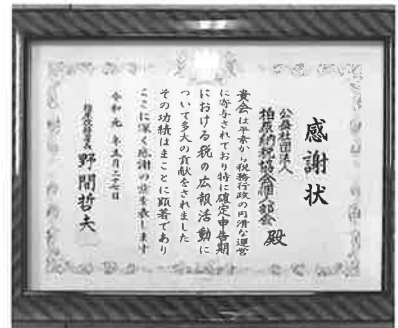 感謝状
公益社団法人
柏原納税協会個人部会 殿
貴会は平素から税務行政の円滑な運営
に寄与されており特に確定申告期
における税の広報活動に
ついて多大の貢献をされました
その功績はまことに顕著であり
ここに深く感謝の意を表します
令和元年五月二十七日
野間哲夫